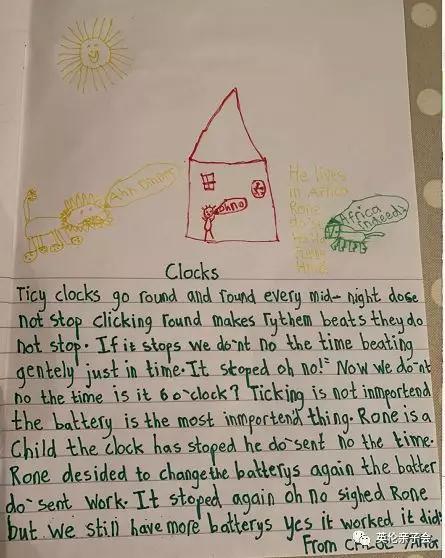 Ahh Dinner
oh no
He lives
in Africa
Rone
do'sent
Africa
indeed!
Clocks
Ticy clocks go round and round every mid-night dose
not stop clicking round makes rythem beats they do
not stop. If it stops we do'nt no the time beating
gentely just in time. It stoped oh no!" Now we do-nt
no the time is it 6 o-clock? Ticking is not inmportend
the battery is the most inmportend thing. Rone is a
Child the clock has stoped he do-sent no the time.
Rone desided to change the batterys again the batter
do-sent work. It stoped again oh no sighed Rone
but we still have more batterys yes it worked it did!
From Chloe
英伦亲子会